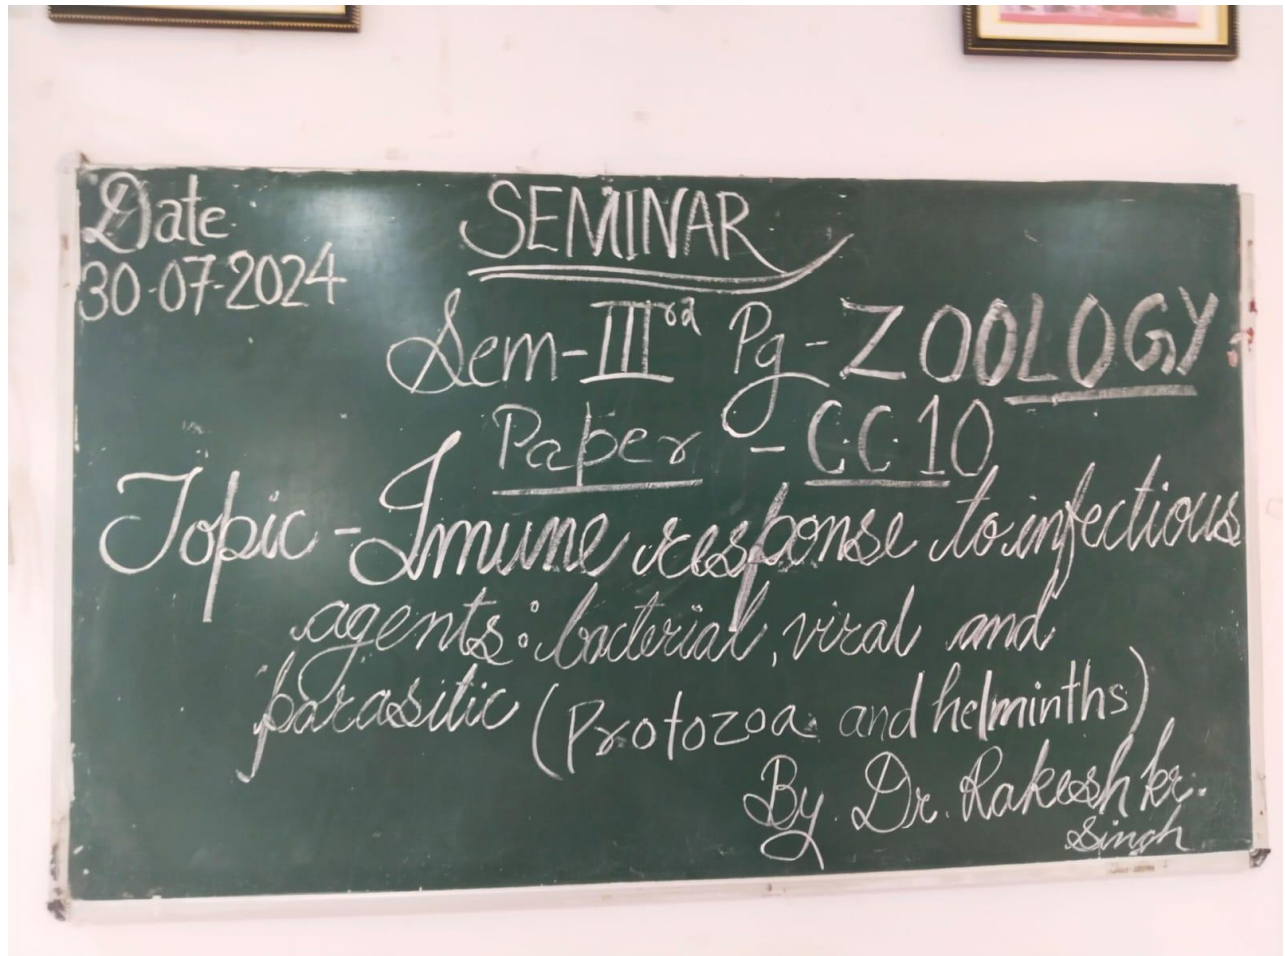 Date
30-07-2024
SEMINAR
Sem-IIIrd Pg-ZOOLOGY
Paper - CC10
Topic - Imune response to infectious
agents: bacterial, viral and
parasitic (Protozoa and helminths)
By. Dr. Rakesh kr.
Singh